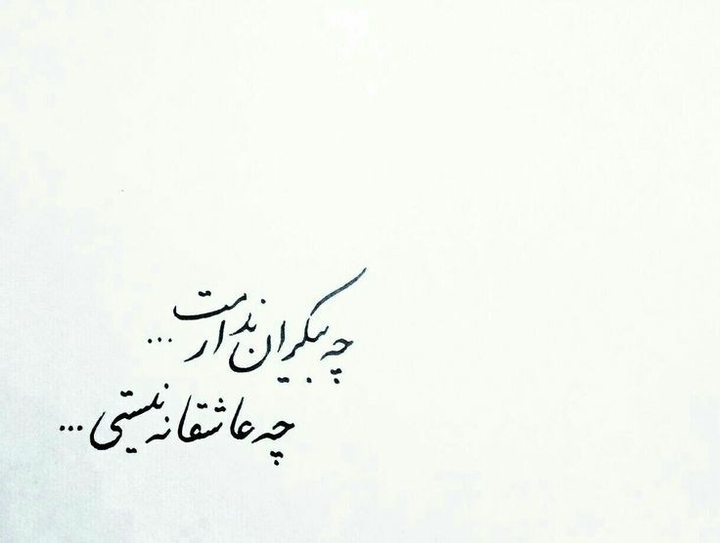 چه بیکران ندارمت ...
چه عاشقانه نیستی ...